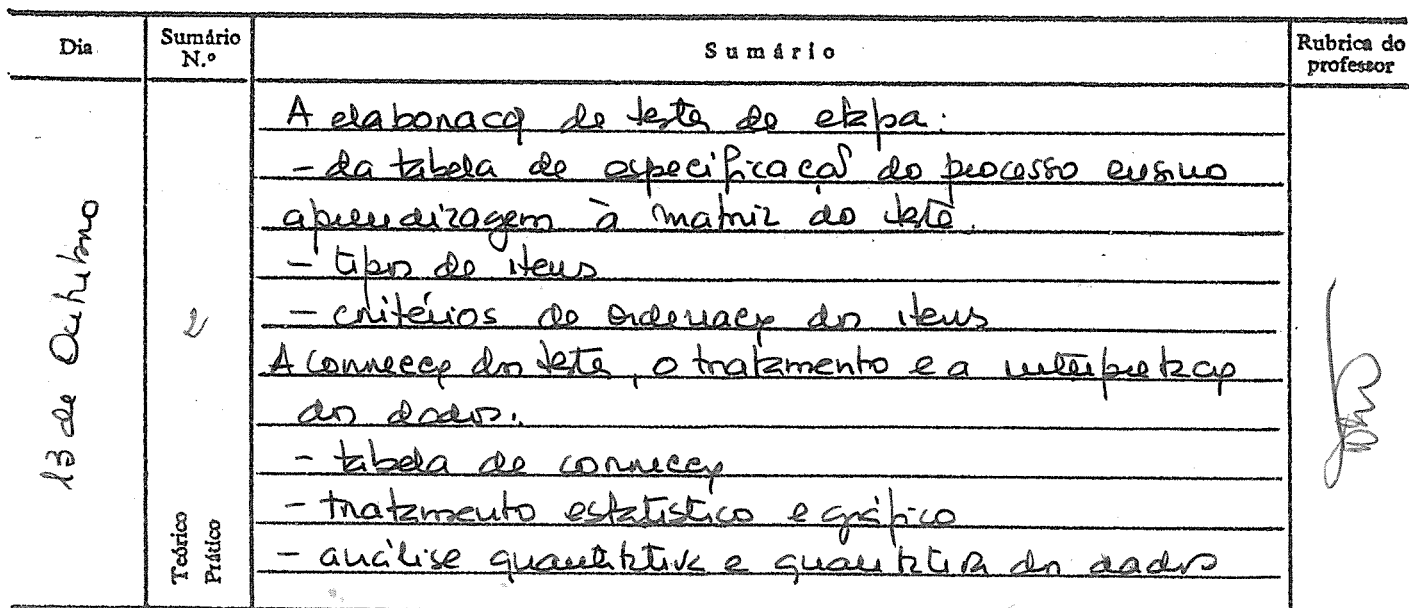 Dia
Sumário N.º
Sumário
Rubrica do professor
13 de Outubro
2
Teórico
Prático
A elaboração de testes de etapa:
- da tabela de especificação do processo ensino
aprendizagem à matriz do teste.
- tipos de itens
- critérios de ordenação dos itens
A correcção dos testes, o tratamento e a interpretação
dos dados.
- tabela de correcção
- tratamento estatístico e gráfico
- análise quantitativa e quantitativa dos dados